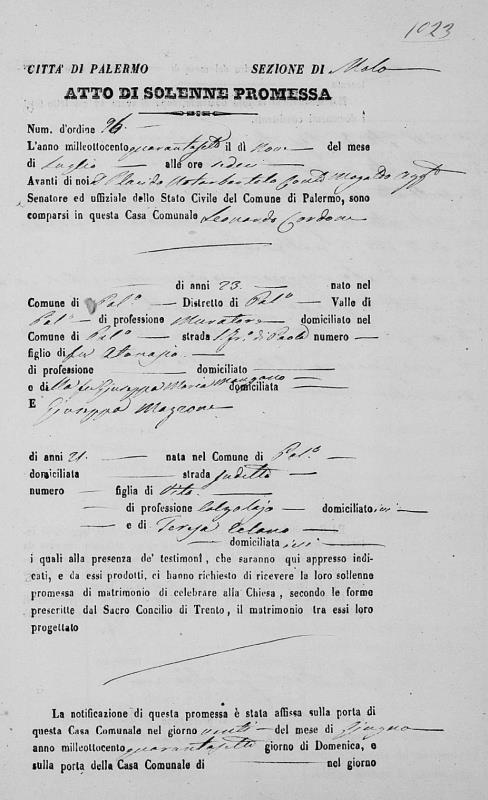 1023
CITTÀ DI PALERMO SEZIONE DI Molo
ATTO DI SOLENNE PROMESSA
Num. d'ordine 96.
L'anno milleottocento quarantasette il dì nove del mese
di Luglio alle ore sedeci
Avanti di noi D. Placido Notarbartolo
Senatore ed uffiziale dello Stato Civile del Comune di Palermo, sono
comparsi in questa Casa Comunale Leonardo Cardone
di anni 23. nato nel
Comune di Pal.o Distretto di Pal.o Valle di
Pal.o di professione Muratore domiciliato nel
Comune di Pal.o strada S. Fr. di Paola numero
figlio di fu Atanasio
di professione domiciliato
e di la fu Giuseppa Maria Mangano domiciliata
E Giuseppa Mazzone
di anni 21. nata nel Comune di Pal.o
domiciliata strada
numero figlia di Vito
di professione Calzolajo domiciliato ivi
e di Teresa Celano
domiciliata ivi
i quali alla presenza de' testimonî, che saranno qui appresso indi-
cati, e da essi prodotti, ci hanno richiesto di ricevere la loro sollenne
promessa di matrimonio di celebrare alla Chiesa, secondo le forme
prescritte dal Sacro Concilio di Trento, il matrimonio tra essi loro
progettato
La notificazione di questa promessa è stata affissa sulla porta di
questa Casa Comunale nel giorno venti del mese di Giugno
anno milleottocento quarantasette giorno di Domenica, e
sulla porta della Casa Comunale di nel giorno